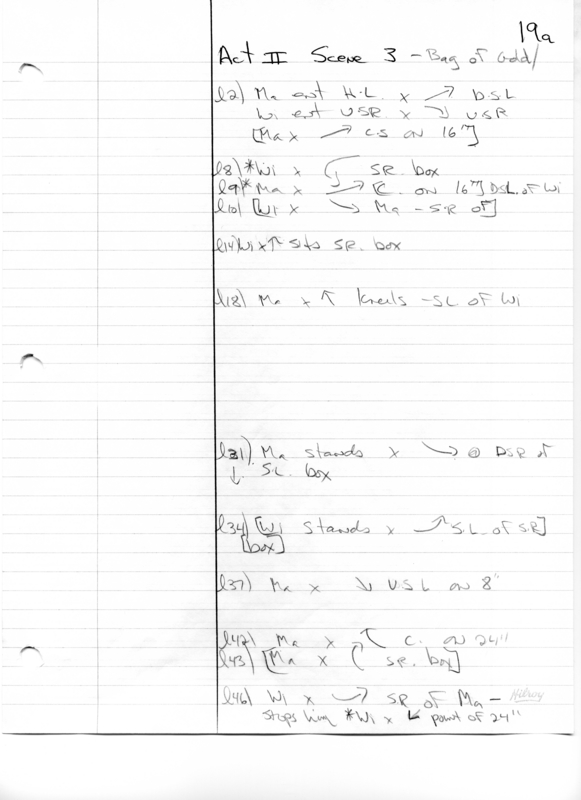 19a
Act II Scene 3 - Bag of Gold/
l2) Ma ent H.L. x ↗ DSL
Wi ent USR x ↘ USR
[Ma x ↗ CS on 16"]
l8) *Wi x SR. box
l9) *Ma x → [C. on 16"] DSL of Wi
l10) [Wi x ↘ Ma - SR of]
l14) Wi x ↑ Sits SR. box
l18) Ma x ↑ kneels - SL of Wi
l31) Ma stands x ↘ @ DSR of
↓ S.L. box
l34) [Wi stands x ↗ S.L. of S.R]
[box]
l37) Ma x ↘ USL on 8"
l42) Ma x ↖ C. on 24"
l43) [Ma x SR. box]
l46) Wi x → SR of Ma -
stops him *Wi x ↙ point of 24"